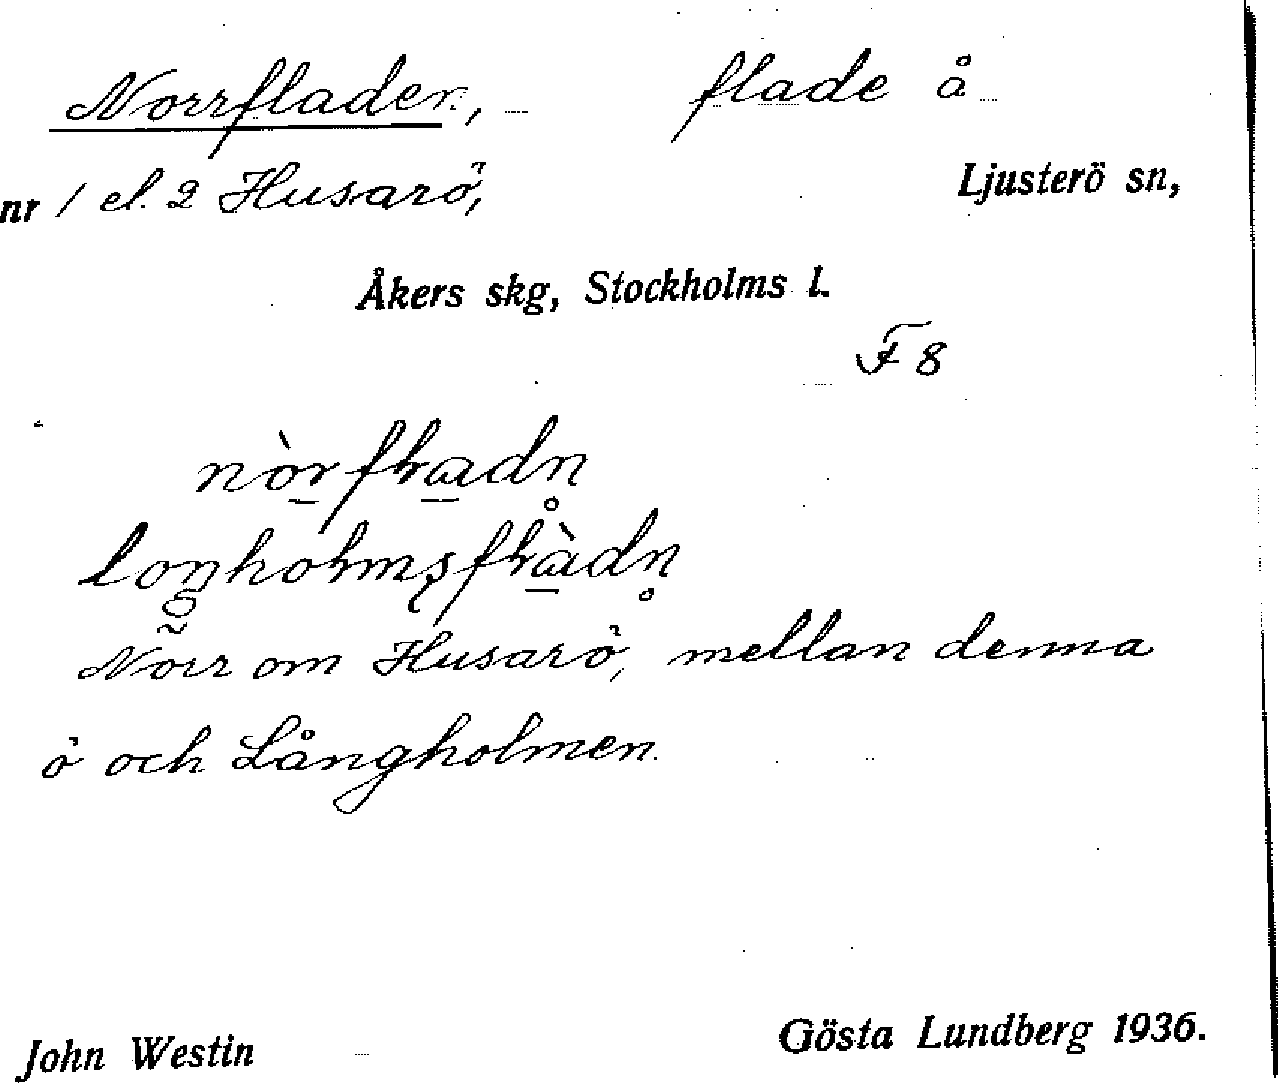 Norrfladen, flade å
nr 1 el. 2 Husarö, Ljusterö sn,
Åkers skg, Stockholms l.
F 8
Norr om Husarö, mellan denna
ö och Långholmen.
John Westin Gösta Lundberg 1936.